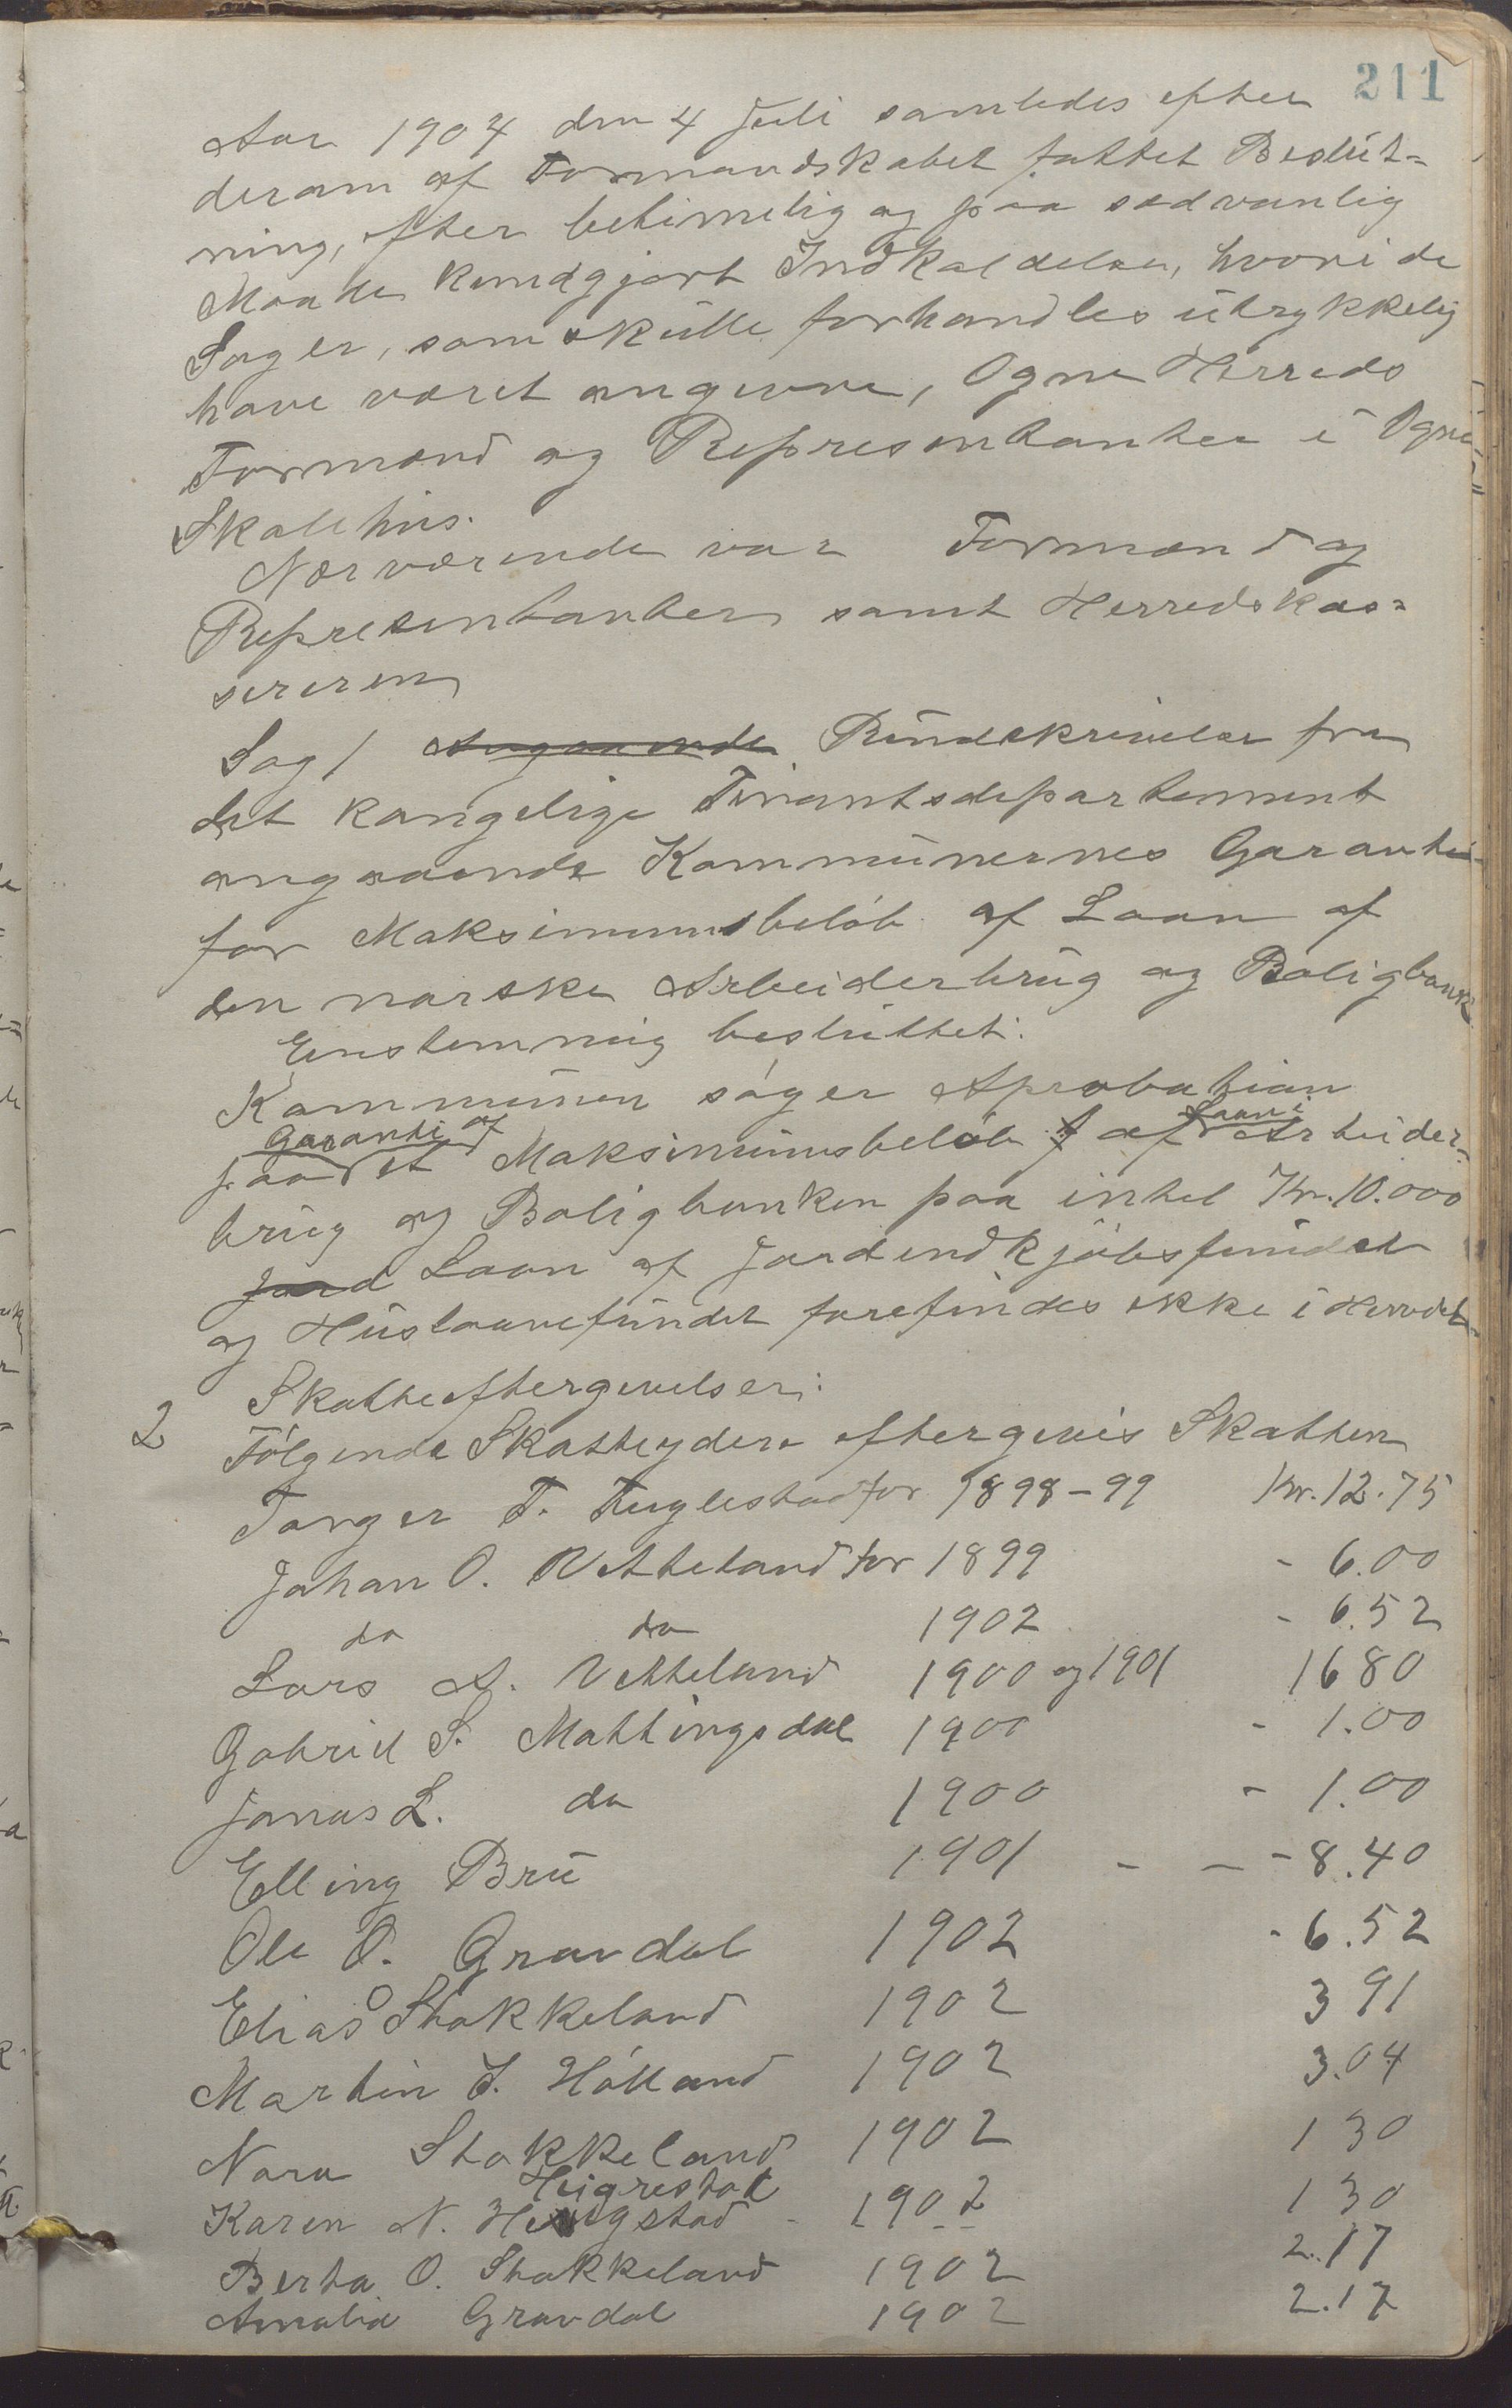 211
Aar 1904 den 4 Juli samledes efter
derom af Formandskabet fattet Beslut-
ning, efter betimelig og paa sædvanlig
Maade kundgjort Indkaldelse, hvori de
Sager, som skulle forhandles utrykkelig
have været angivne, Ogne Herreds
Formænd og Represontanter i Ogne
Skolehus.
Nærværende var Formænd og
Representanter samt Herredskas-
sereren
Sag 1 Angaaende Rundskrivelse fra
det kongelige Finantsdepartement
angaaende Kommunernes Garanti
for Maksimumsbeløb af Laan af
den norske Arbeiderbrug og Boligbank
Enstemmig besluttet:
Kommunen søger Aprobation
Garanti af Laan i
paa et Maksimumsbeløb af Arbeider-
brug og Boligbanken paa intil Kr. 10.000
Jord Laan af Jordindkjøbsfundet
og Huslaanefundet forefindes ikke i Herredet.
2 Skatteeftergivelser:
Følgende Skatteydere eftergives Skatten
Torger T. Fuglestad for 1898-99 Kr. 12.75
Johan O. Vetteland for 1899 - 6.00
do do 1902 - 6.52
Lars A. Vetteland 1900 og 1901 16 80
Gabriel S. Mattingsdal 1900 - 1.00
Jonas L. do 1900 - 1.00
Elling Bru 1901 - - - 8.40
Ole O. Gravdal 1902 - 6.52
Elias O Stokkeland 1902 3 91
Martin S. Hølland 1902 3.04
Nora Stokkeland 1902 1 30
Heigrestad
Karen N. Hegstad - 1902 1 30
Berta O. Stokkeland 1902 2.17
Amalia Gravdal 1902 2.17